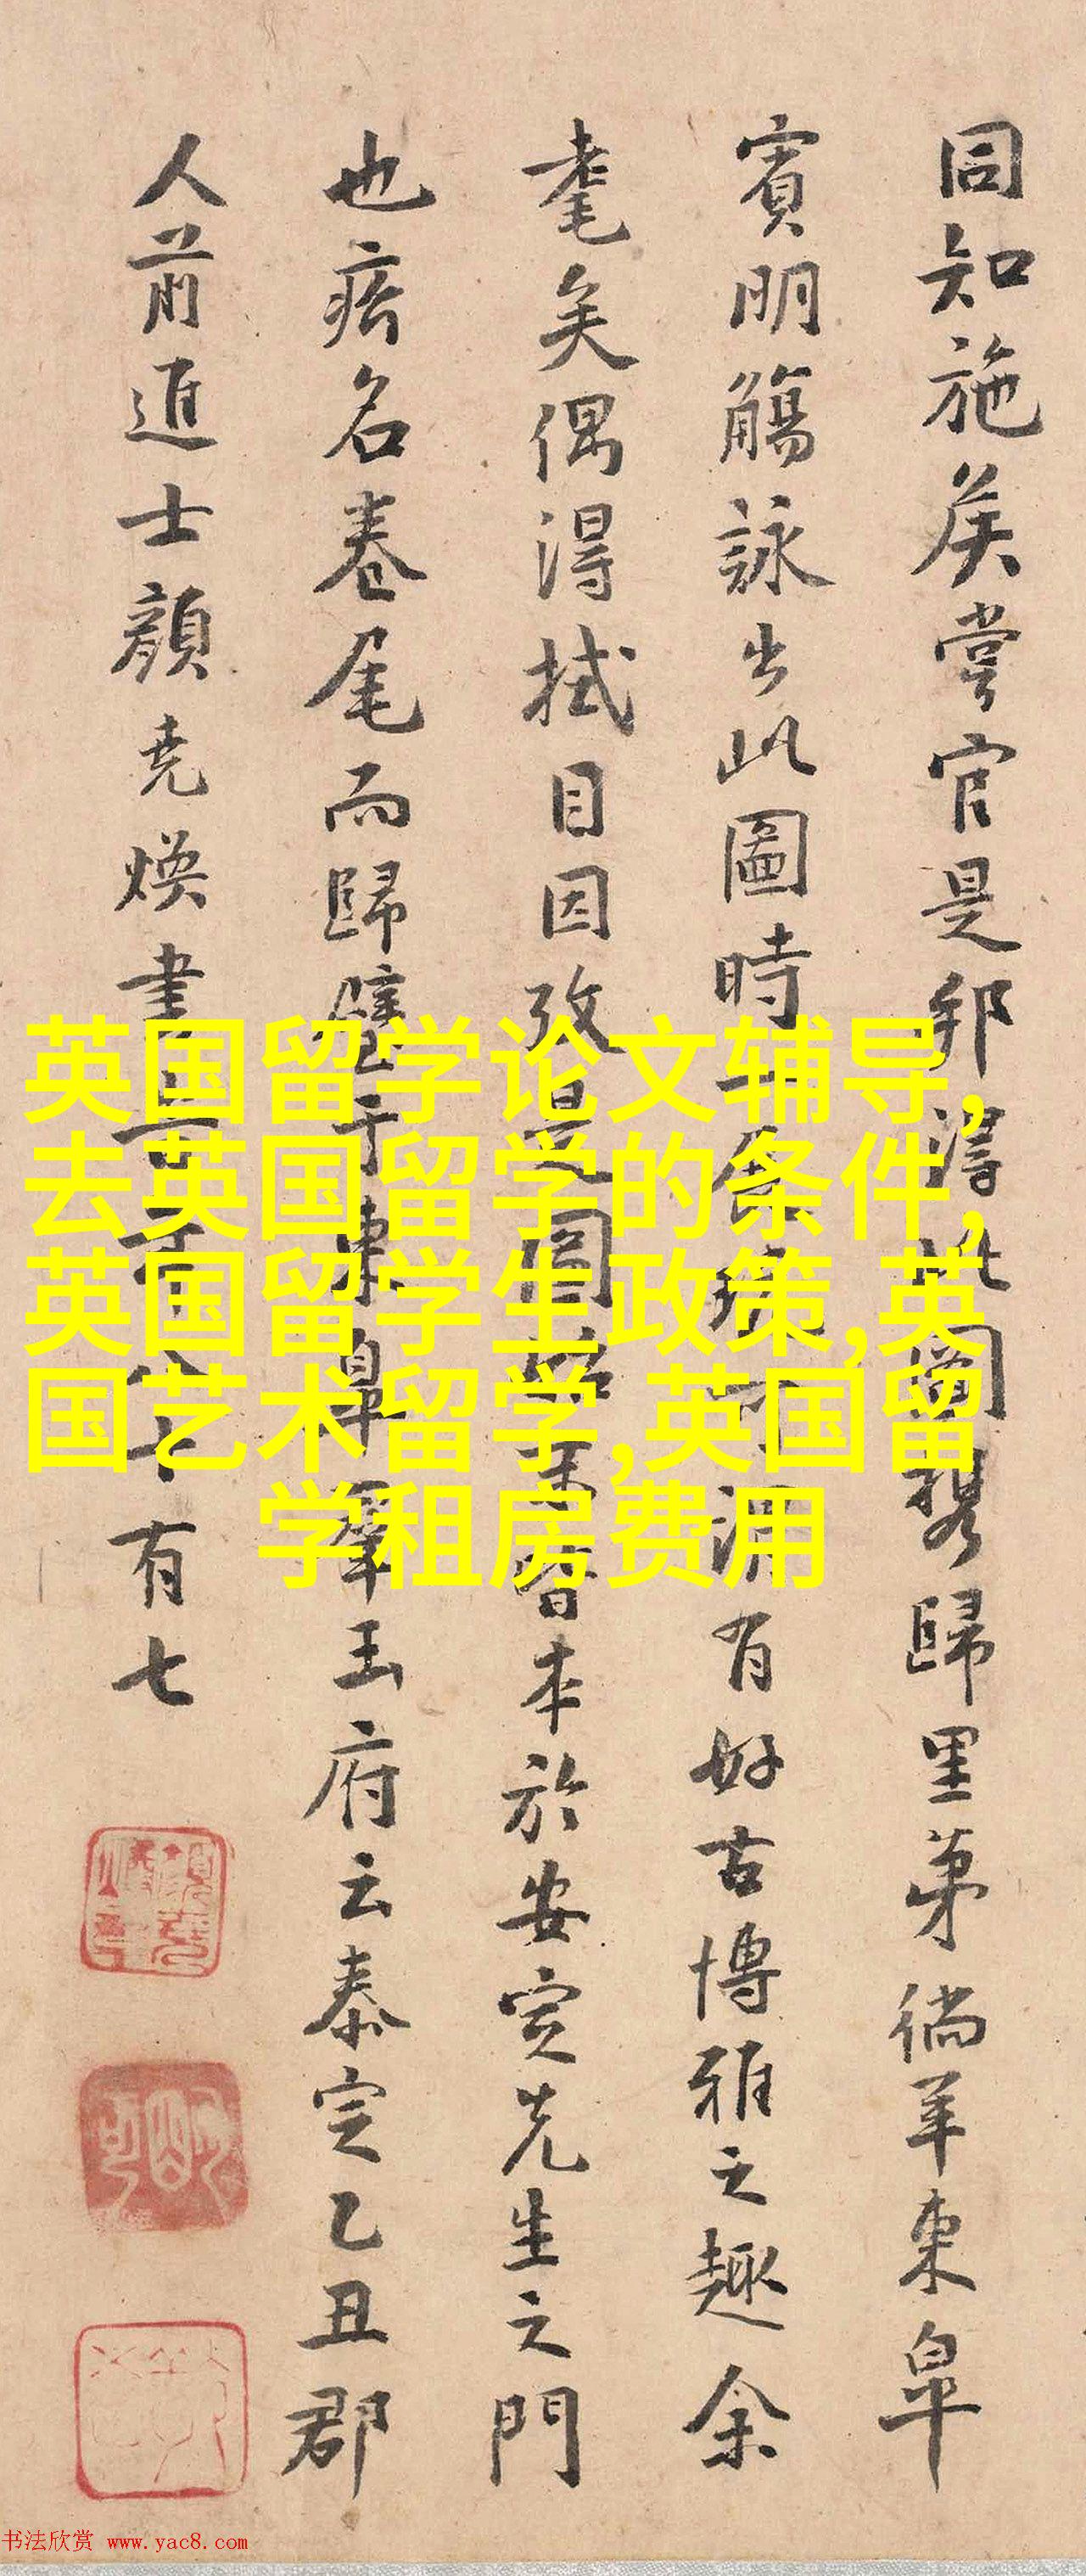 同知施矦嘗官是邦得此圖携歸里第徜羊東皐
賓明觴詠出此圖時
有好古博雅之趣余
耄矣偶得拭目因攷是圖
本於安定先生之門
也瘩名卷尾而歸
于東皐
羣玉府云泰定乙丑郡
人前進士顔堯煥書
十有七
英国留学论文辅导,
去英国留学的条件,
英国留学生政策,英
国艺术留学,英国留
学租房费用
书法欣赏 www.yac8.com